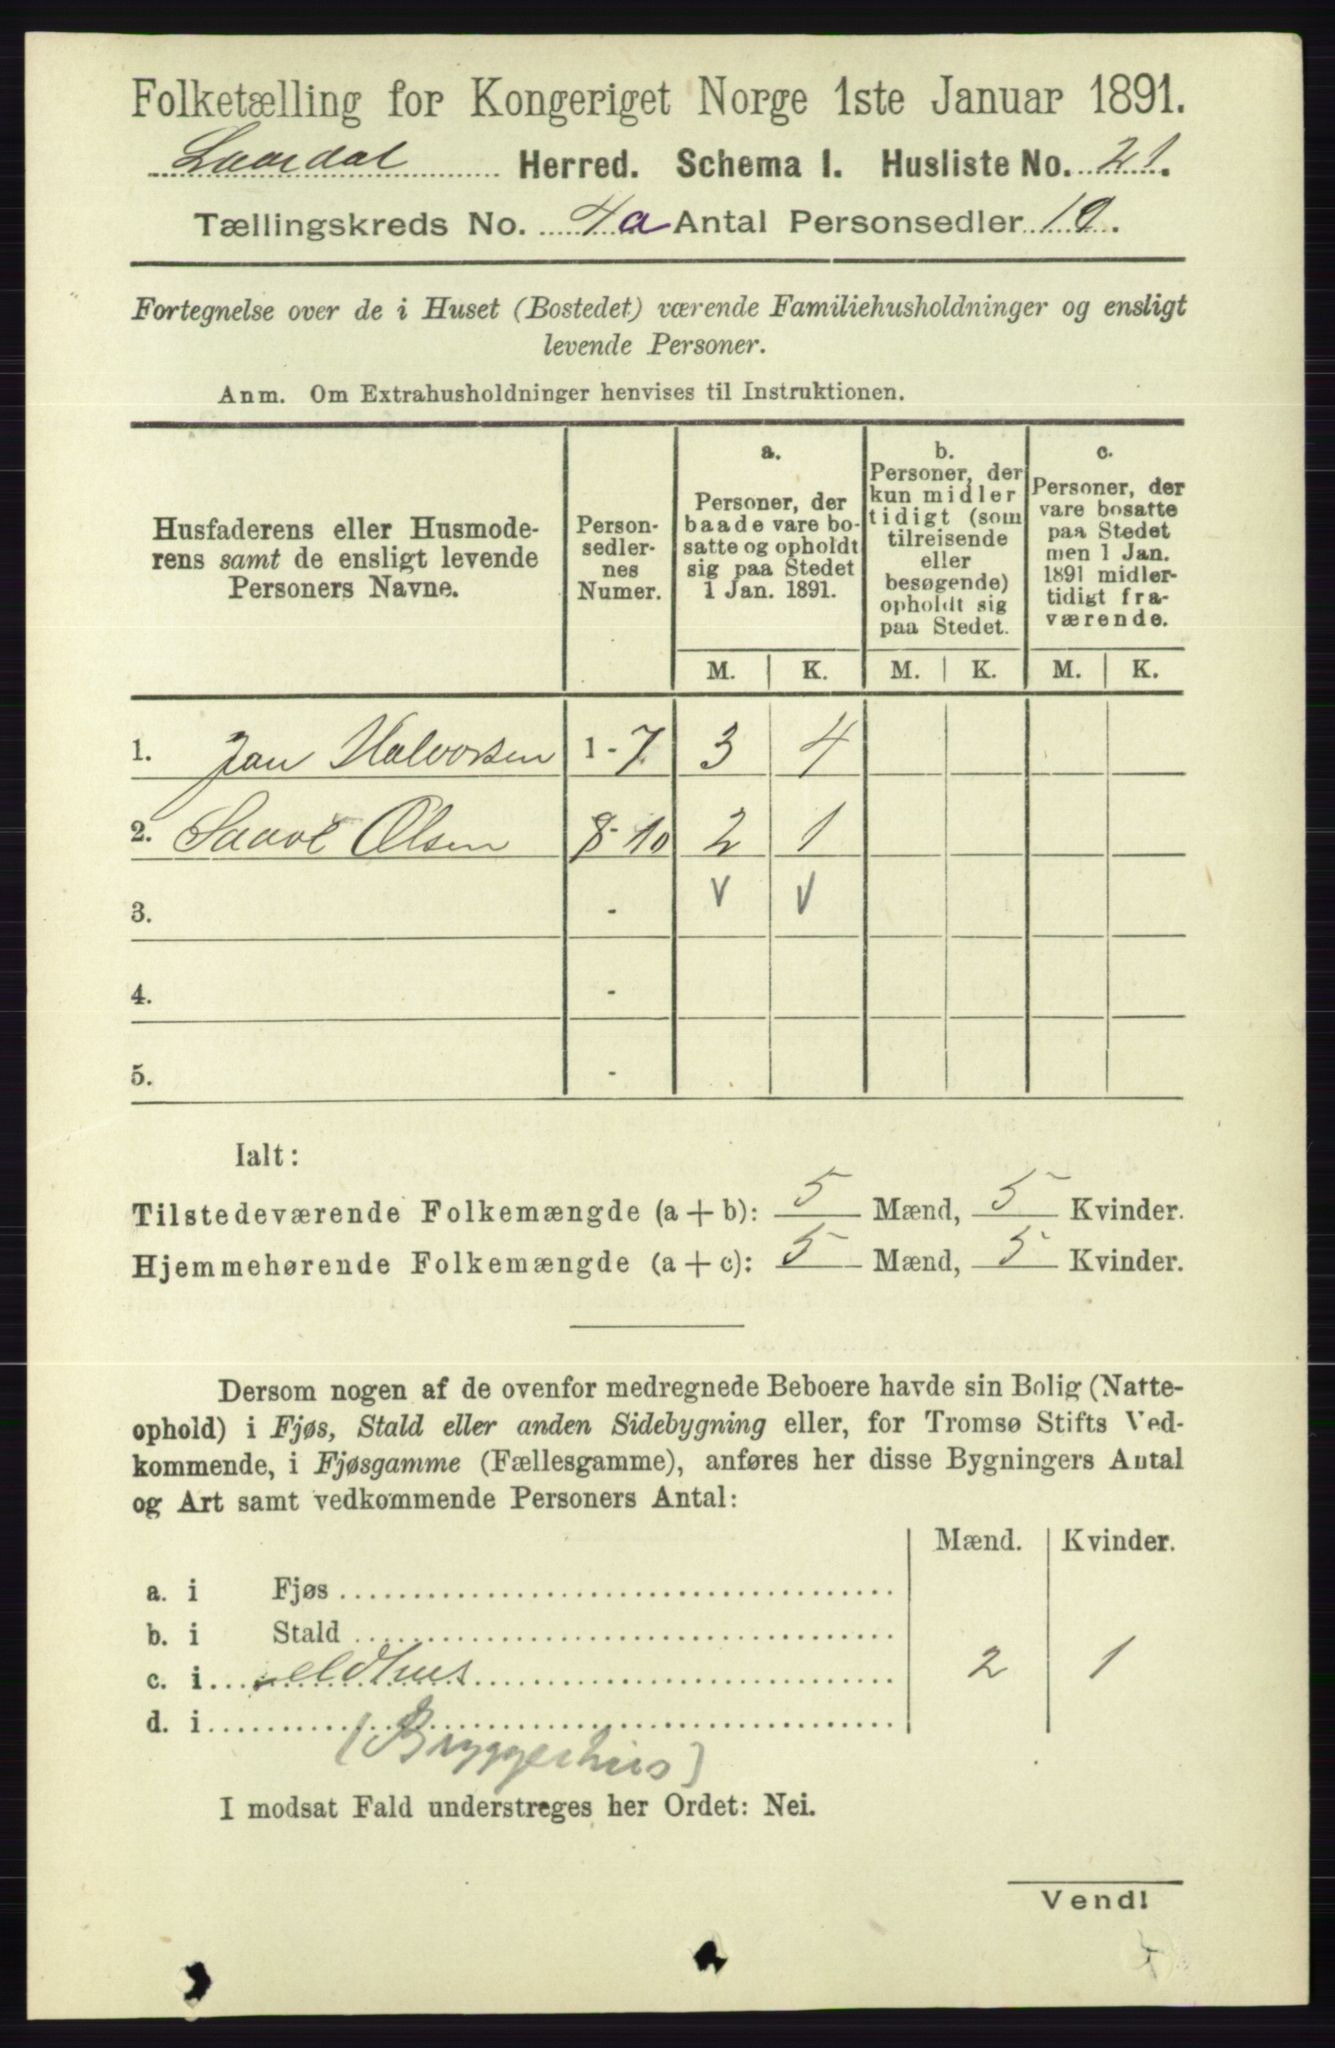 Folketælling for Kongeriget Norge 1ste Januar 1891.
Laardal Herred. Schema I. Husliste No. 21.
Tællingskreds No. 4a Antal Personsedler 10.
Fortegnelse over de i Huset (Bostedet) værende Familiehusholdninger og ensligt
levende Personer.
Anm. Om Extrahusholdninger henvises til Instruktionen.
Husfaderens eller Husmode-
rens samt de ensligt levende
Personers Navne.
Person-
sedler-
nes
Numer.
a.
Personer, der
baade vare bo-
satte og opholdt
sig paa Stedet
1 Jan. 1891.
b.
Personer, der
kun midler
tidigt (som
tilreisende
eller
besøgende)
opholdt sig
paa Stedet.
c.
Personer, der
vare bosatte
paa Stedet
men 1 Jan.
1891 midler-
tidigt fra-
værende.
M. K. M. K. M. K.
1. Jan Halvorsen 1-7. 3 4
2. Saave Olsen 8-10 2 1
3. - V V
4. -
5. -
Ialt:
Tilstedeværende Folkemængde (a+b): 5 Mænd, 5 Kvinder.
Hjemmehørende Folkemængde (a+c): 5 Mænd, 5 Kvinder.
Dersom nogen af de ovenfor medregnede Beboere havde sin Bolig (Natte-
ophold) i Fjøs, Stald eller anden Sidebygning eller, for Tromsø Stifts Ved-
kommende, i Fjøsgamme (Fællesgamme), anføres her disse Bygningers Antal
og Art samt vedkommende Personers Antal:
Mænd. Kvinder.
a. i Fjøs
b. i Stald
c. i eldhus 2 1
d. i
(Bryggerhus)
I modsat Fald understreges her Ordet: Nei.
Vend!